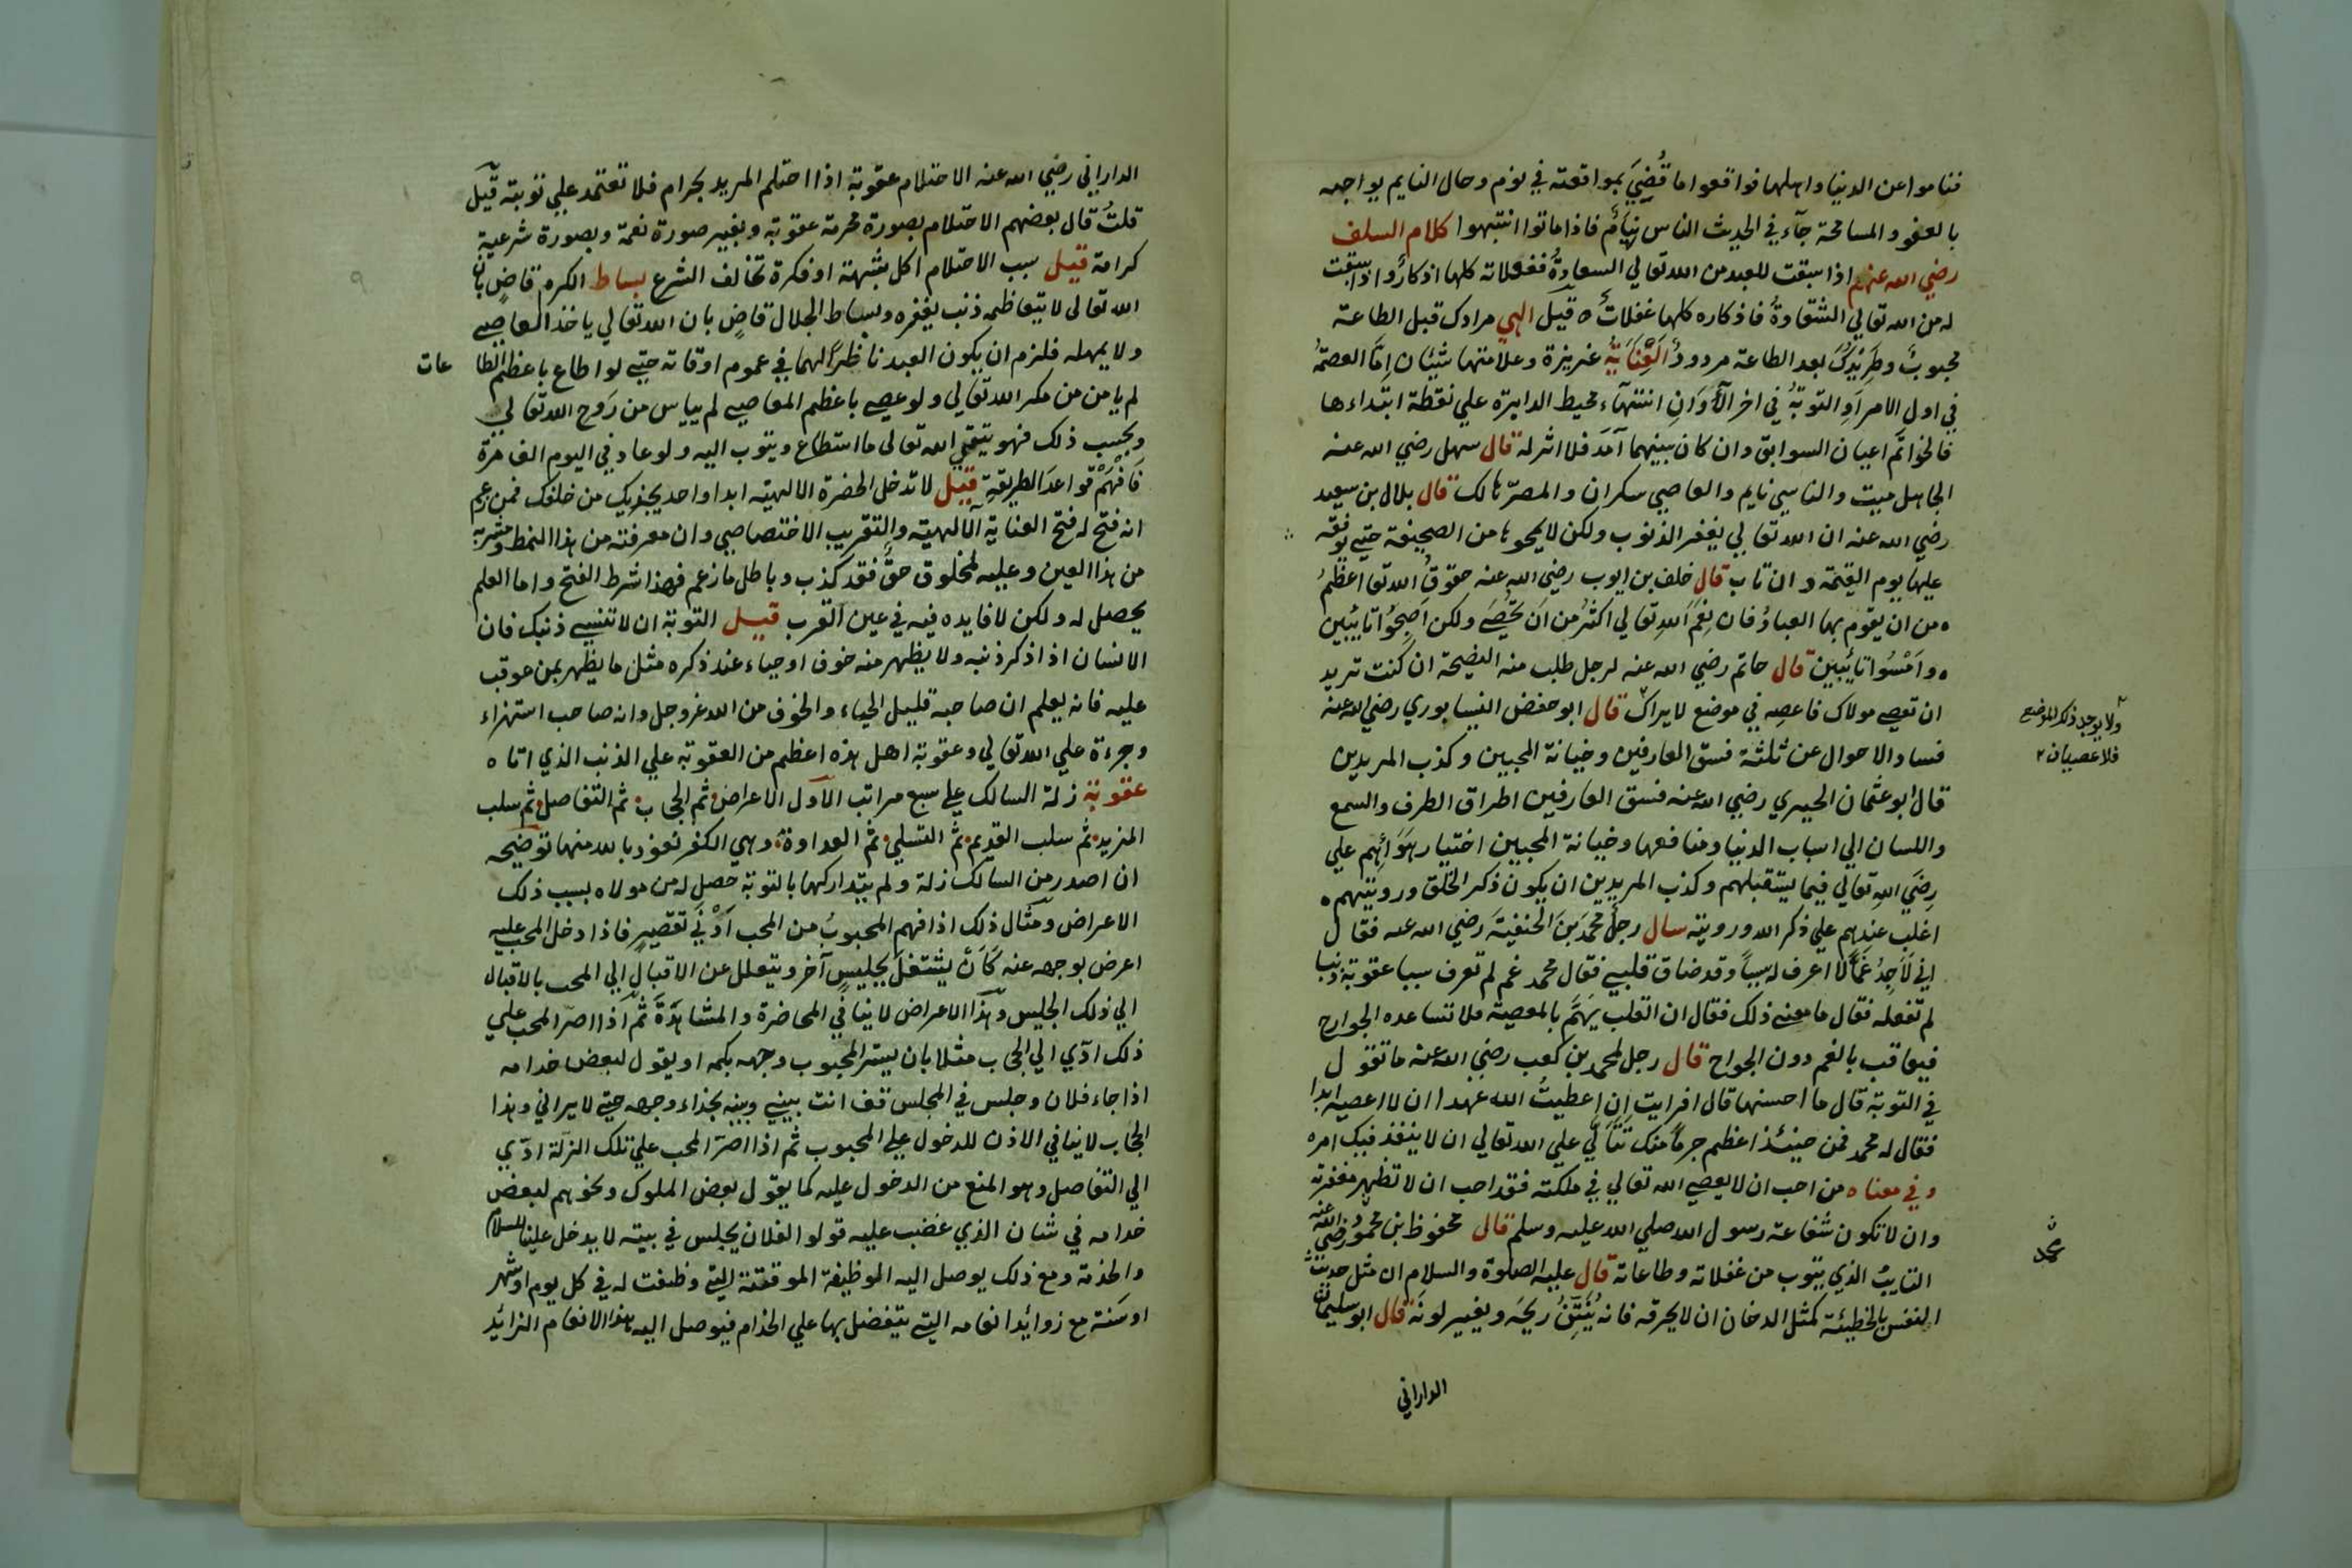 فناموا عن الدنيا واهلها فواقعوا ما قُضِيَ بمواقعته في نوم وحال النايم يواجه
بالعفو والمسامحة جآء في الحديث الناس نيامٌ فاذا ماتوا انتبهوا كلام السلف
رضي الله عنهم اذا سبقت للعبد من الله تعالي السعادةُ فغفلاته كلها اذكارٌ واذا سبقت
له من الله تعالي الشقاوةُ فاذكاره كلها غفلاتٌ ه قيل الهي مرادك قبل الطاعة
محبوبٌ وطريدك بعد الطاعة مردودٌ العنايةُ عزيزة وعلامتها شيئان اما العصمةُ
في اول الامر اوِ التوبةُ في اخر الأوانِ انتهآء محيط الدايرة علي نقطة ابتداءها
فالخواتم اعيان السوابق وان كان بينهما آمد فلا اثر له قال سهل رضي الله عنه
الجاهل ميت والناسي نايم والعاصي سكران والمصرّ هالك قال بلال بن سعيد
رضي الله عنه ان الله تعالي يغفر الذنوب ولكن لا يمحوها من الصحيفة حتي يوقفه
عليها يوم القيمة وان تاب قال خلف بن ايوب رضي الله عنه حقوقُ الله تعا اعظمُ
ه من ان يقوم بها العبادُ فان نِعَمَ اللهِ تعالي اكثرُ من ان تحُصَي ولكن اَصبِحُوا تائبين
ه وامْسُوا تائبين قال حاتم رضي الله عنه لرجل طلب منه النصيحة ان كنت تريد
ان تعصي مولاك فاعصه في موضع لا يراك قال ابو حفص النيسابوري رضي الله عنه
ولا يوجد ذكر الموضع
فلا عصيان
فساد الاحوال عن ثلثة فسق العارفين وخيانة المحبين وكذب المريدين
قال ابو عثمان الحيري رضي الله عنه فسق العارفين اطراق الطرف والسمع
واللسان الي اسباب الدنيا ومنافعها وخيانة المحبين اختيار هَوَائِهم علي
رِضَي اللهِ تعالي فيما يستقبلهم وكذب المريدين ان يكون ذكر الخلق ورويتهم ه
اغلب عندهم علي ذكر الله ورويته سال رجلٌ محمدَ بنَ الحنفيةَ رضي الله عنه فقال
اني لَاَجِدُ غمًّا لا اعرف له سببا وقد ضاق قلبي فقال محمد غم لم تعرف سببا عقوبة ذنبا
لم تفعله فقال ما معني ذلك فقال ان القلب يَهَتمّ بالمعصية فلا تساعده الجوارح
فيعاقب بالغم دون الجوارح قال رجل لمحمد بن كعب رضي الله عنه ما تقول
في التوبة قال ما احسنها قال افرايت ان اعطيتُ الله عهدا ان لا اعصيه ابدا
فقال له محمد فمن حينئذ اعظم جرمًا منك تتألّي علي الله تعالي ان لا ينفذ فيك امره
وفي معناه من احب ان لا يعصي الله تعالي في ملكته فقد احب ان لا تظهر مغفرته
وان لا تكون شفاعة رسول الله صلي الله عليه وسلم قال محفوظ بن محمود رضي الله عنه
التايبُ الذي يتوب من غفلاته وطاعاته قال عليه الصلوة والسلام ان مثل حديث
النفس بالخطيئة كمثل الدخان ان لا يحرقه فانه يُنَتِّنُ ريحَه ويغير لونَه قال ابو سليمان
الداراني
الداراني رضي الله عنه الاحتلام عقوبة اذا احتلم المريد بحرام فلا تعتمد علي توبته قيل
قلتُ قال بعضهم الاحتلام بصورة محرمة عقوبة وبغير صورة نغمة وبصورة شرعية
كرامة قيل سبب الاحتلام اكل بشبهة او فكرة تخالف الشرع بساط الكرم قاضٍ بان
الله تعالي لا يتعاظمه ذنب يغفره وبساط الجلال قاضٍ بان الله تعالي ياخذ المعاصي
ولا يمهله فلزم ان يكون العبد ناظرًا لهما في عموم اوقاته حتي لو اطاع باعظم الطاعات
لم يامن من مكر الله تعالي ولو عصي باعظم المعاصي لم يياس من رَوح الله تعالي
وبحسب ذلك فهو يتقي الله تعالي ما استطاع ويتوب اليه ولو عاد في اليوم الف مرة
فَافْهَمْ قواعدَ الطريقةِ قيل لا تدخل الحضرة الالهية ابدا واحد يجذبك من خلفك فمن زعم
انه فتح له فتح العناية الالهية والتقريب الاختصاصي وان معرفته من هذا النمط ومشربه
من هذا العين وعليه لمخلوق حقٌّ فقد كذب وباطل ما زعم فهذا شرط الفتح واما العلم
يحصل له ولكن لا فايده فيه في عين القرب قيل التوبة ان لا تنسي ذنبك فان
الانسان اذا ذكر ذنبه ولا يظهر منه خوف او حياء عند ذكره مثل ما يظهر بمن عوقب
عليه فانه يعلم ان صاحبه قليل الحياء والخوف من الله عز وجل وانه صاحب استهزاء
وجرءة علي الله تعالي وعقوبة اهل هذه اعظم من العقوبة علي الذنب الذي اتاه
عقوبة زلة السالك علي سبع مراتب الاول الاعراض ثم الحجاب ثم التفاصل ثم سلب
المزيد ثم سلب القديم ثم التسلي ثم العداوة وهي الكفر نعوذ بالله منها توضيحه
ان اصدر من السالك زلة ولم يتداركها بالتوبة حصل له من مولاه بسبب ذلك
الاعراض ومثال ذلك اذا فهم المحبوبُ من المحب اَدْنَي تقصيرٍ فاذا دخل المحب عليه
اعرض بوجهه عنه كَاَنْ يشتغل بجليسٍ آخر ويتعلل عن الاقبال الي المحب بالاقبال
الي ذلك الجليس وهذا الاعراض لا ينافي المحاضرة والمشاهدة ثم اذا اصرّ المحب علي
ذلك ادّي الي الحجاب مثلا بان يستر المحبوب وجهه بكمه او يقول لبعض خدامه
اذا جاء فلان وجلس في المجلس قف انت بيني وبينه بحذاء وجهه حتي لا يراني وهذا
الحجاب لا ينافي الاذن للدخول علي المحبوب ثم اذا اصرّ المحب علي تلك الزلّة ادّي
الي التفاصل وهو المنع من الدخول عليه كما يقول بعض الملوك ونحوهم لبعض
خدامه في شان الذي غضب عليه قولوا لفلان يجلس في بيته لا يدخل علينا للسلام
والخدمة ومع ذلك يوصل اليه الموظيفة الموقتة التي وظفت له في كل يوم او شهر
او سَنة مع زوائد انعامه التي يتفضل بها علي الخدام فيوصل اليه هذا الانعام الزائد